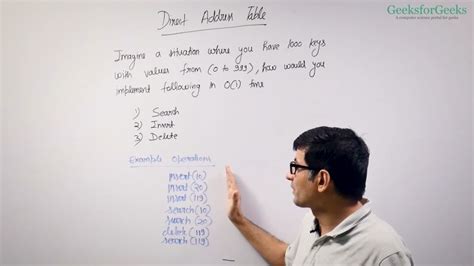 GeeksforGeeks
A computer science portal for geeks
Direct Address Table
Imagine a situation where you have 1000 keys
with values from (0 to 999), how would you
implement following in O(1) time
1) Search
2) Insert
3) Delete
Example Operations
insert(10)
insert(20)
insert(119)
search(10)
search(20)
delete(119)
search(119)